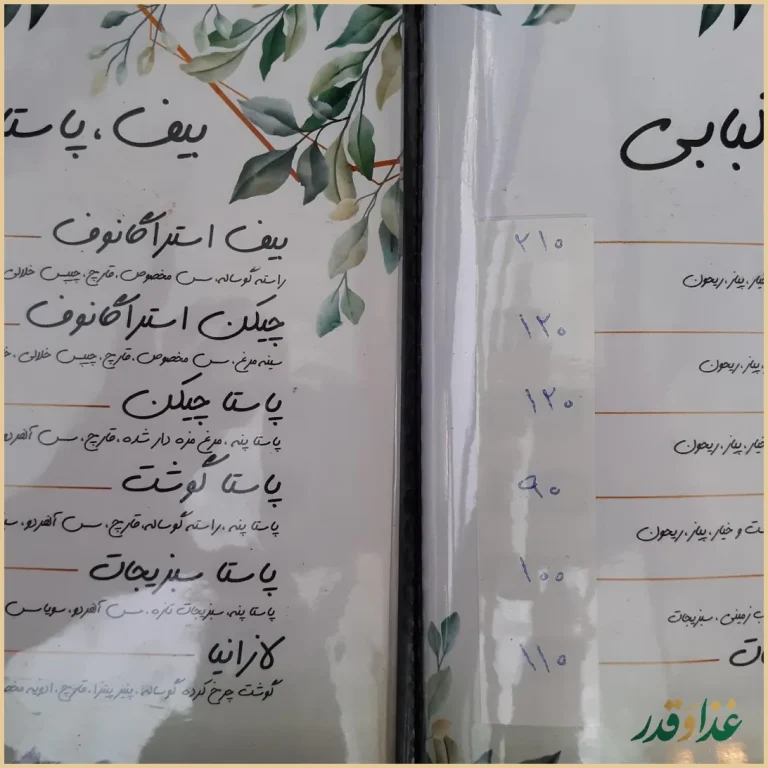 بیف، پاستا
بیف استراگانوف
راسته گوساله، سس مخصوص، قارچ، چیپس خلالی
چیکن استراگانوف
سینه مرغ، سس مخصوص، قارچ، چیپس خلالی،
پاستا چیکن
پاستا پنه، مرغ مزه دار شده، قارچ، سس آلفردو
پاستا گوشت
پاستا پنه، راسته گوساله، قارچ، سس آلفردو،
پاستا سبزیجات
پاستا پنه، سبزیجات تازه، سس آلفردو، سویاسس
لازانیا
گوشت چرخ کرده گوساله، پنیر پیتزا، قارچ، ادویه
۲۱۰
خیار، پیاز، ریحون
۱۲۰
پیاز، ریحون
۱۲۰
خیار، پیاز، ریحون
۹۰
و خیار، پیاز، ریحون
۱۰۰
زمینی، سبزیجات
۱۱۰
غذا و قدر